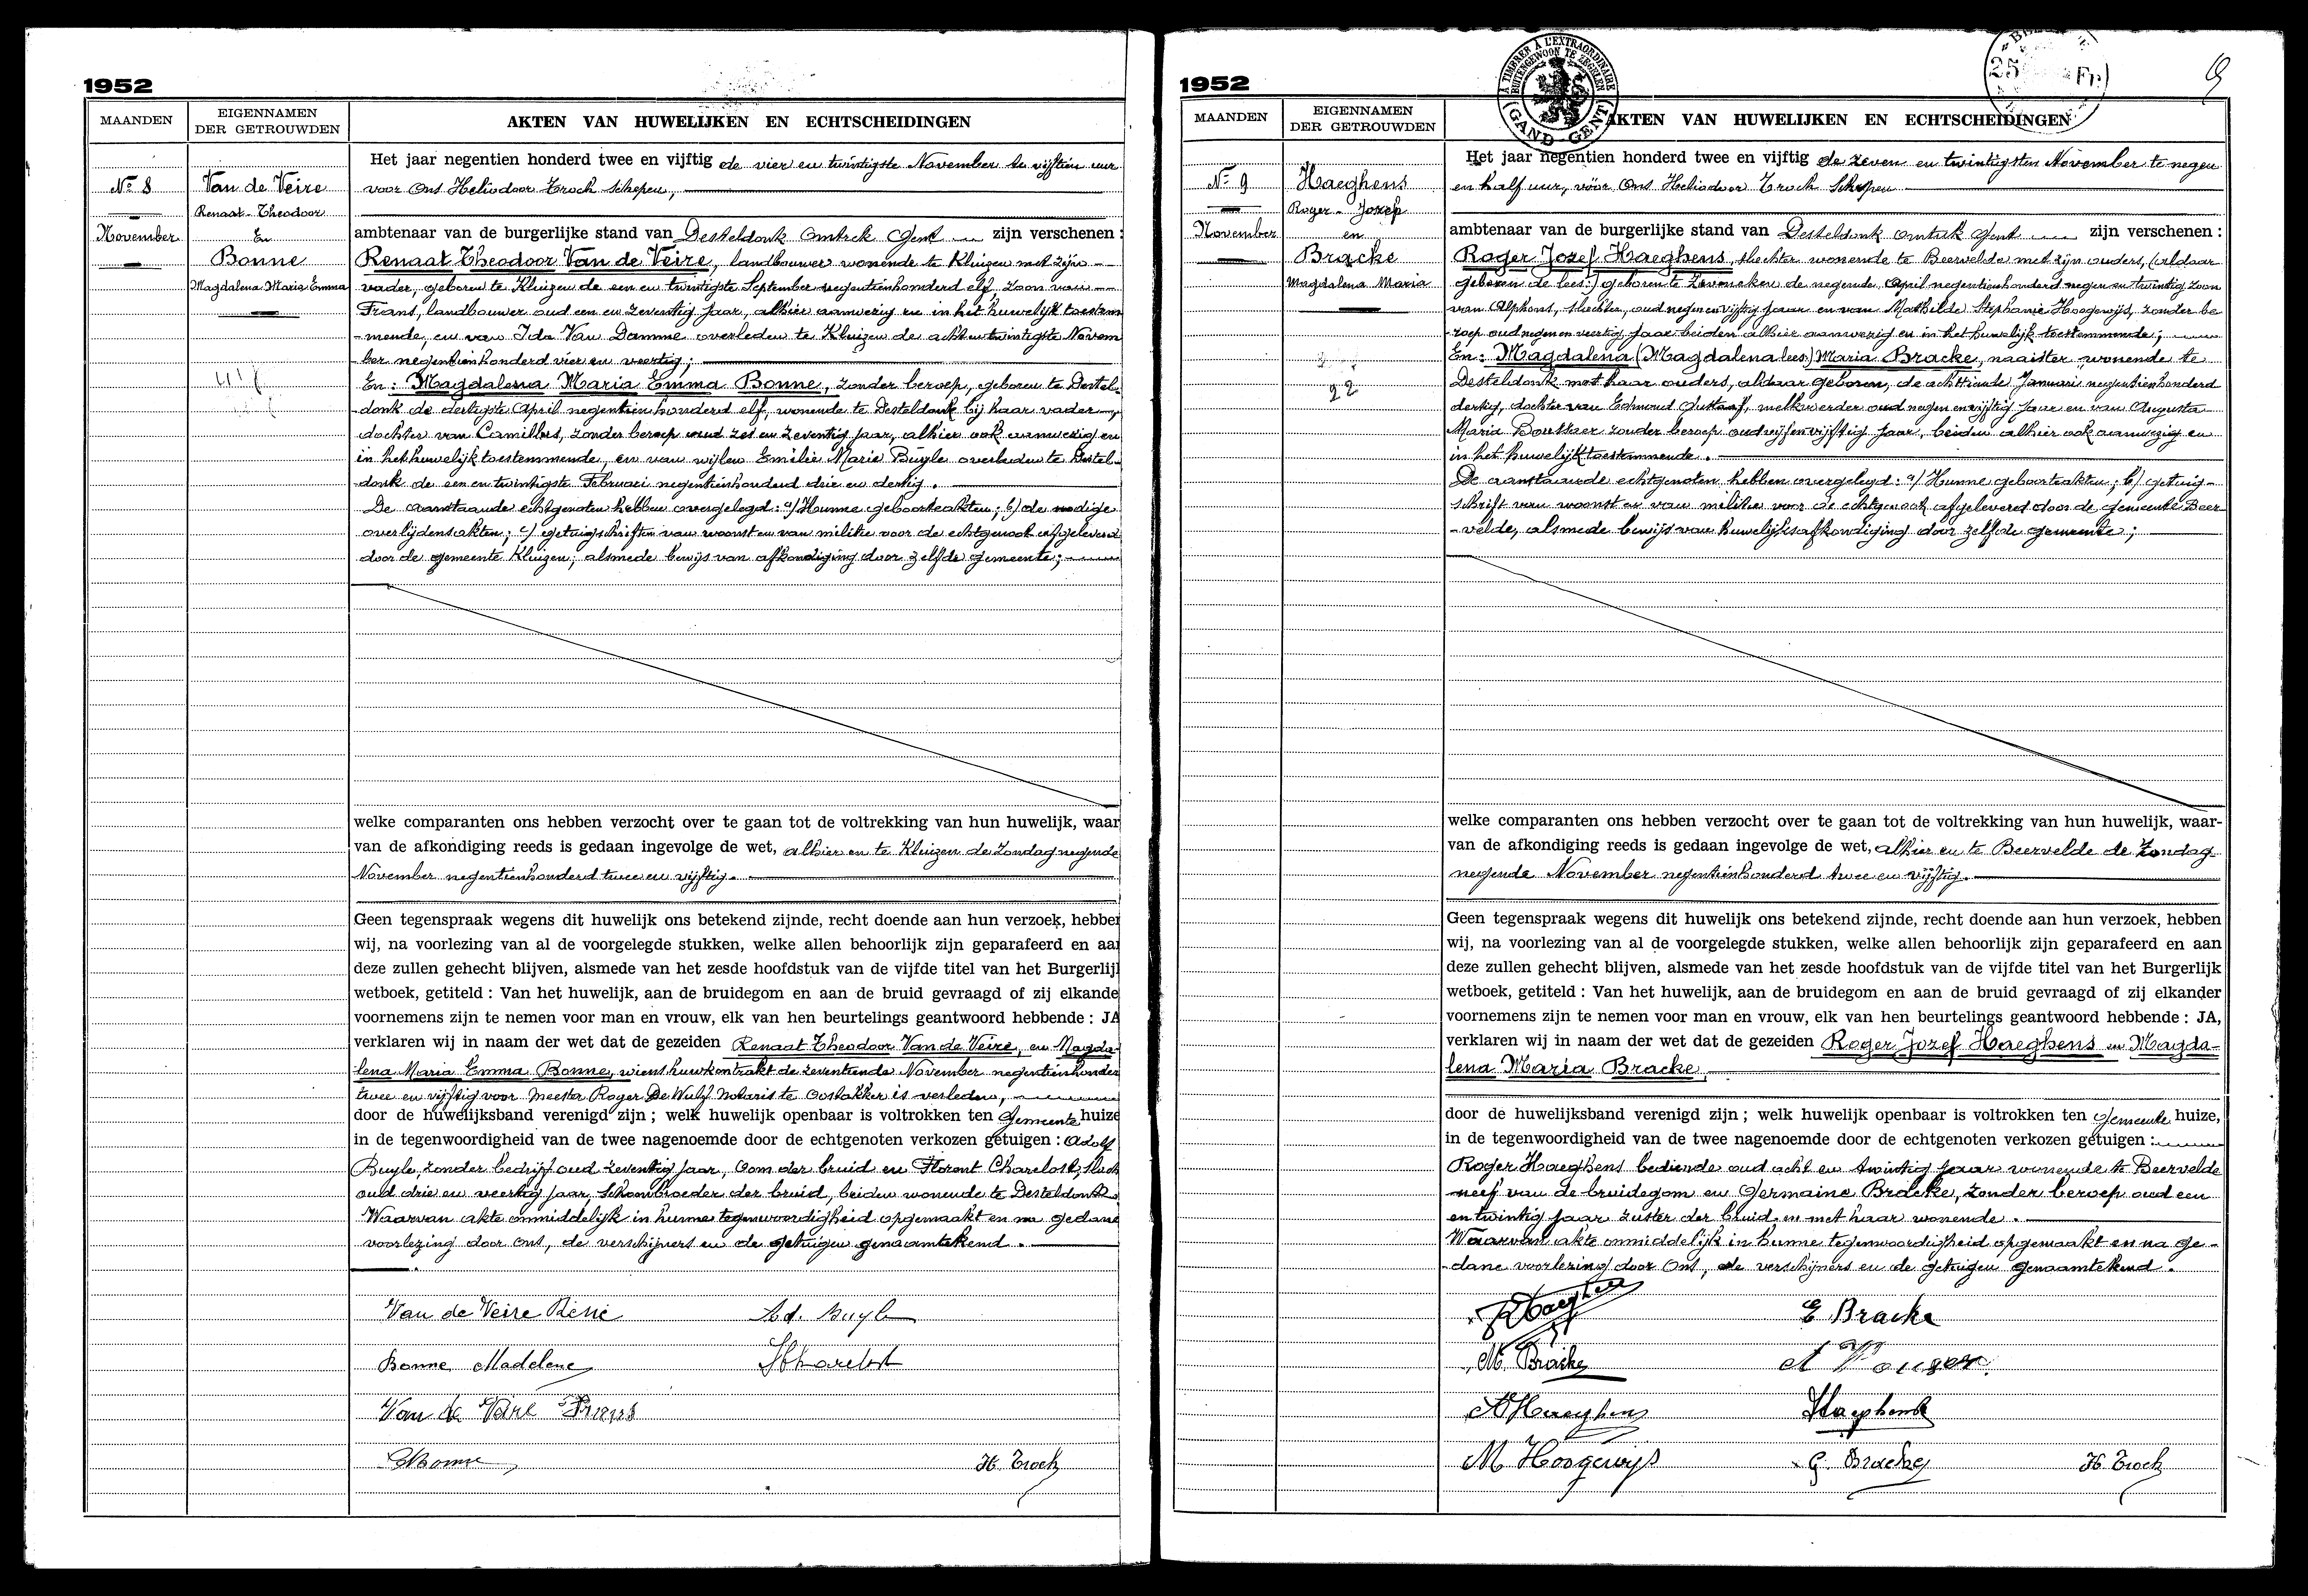 1952
MAANDEN
EIGENNAMEN
DER GETROUWDEN
AKTEN VAN HUWELIJKEN EN ECHTSCHEIDINGEN
No 8
November
Van de Veire
Renaat-Theodoor
En
Bonne
Magdalena Maria Emma
Het jaar negentien honderd twee en vijftig de vier en twintigste November te vijftien uur
voor Ons Heliodoor Trock Schepen,
ambtenaar van de burgerlijke stand van Desteldonk Omtrek Gent zijn verschenen :
Renaat Theodoor Van de Veire, landbouwer wonende te Kluizen met zijn
vader, geboren te Kluizen de een en twintigste September negentienhonderd elf, zoon van
Frans, landbouwer oud een en zeventig jaar, alhier aanwezig en in het huwelijk toestem
-mende, en van Ida Van Damme overleden te Kluizen de acht en twintigste Novem
ber negentienhonderd vier en veertig;
En : Magdalena Maria Emma Bonne, zonder beroep, geboren te Destel-
donk de dertigste April negentienhonderd elf, wonende te Desteldonk bij haar vader,
dochter van Camillus, zonder beroep oud zes en zeventig jaar, alhier ook aanwezig en
in het huwelijk toestemmende, en van wijlen Emilie Marie Buyle overleden te Destel-
donk de een en twintigste Februari negentienhonderd drie en dertig.
De aanstaande echtgenoten hebben overgelegd : a) Hunne geboorteakten; b) de nodige
overlijdensakten; c) getuigschriften van woonst en van militie voor de echtgenoot afgeleverd
door de gemeente Kluizen; alsmede bewijs van afkondiging door zelfde gemeente;
welke comparanten ons hebben verzocht over te gaan tot de voltrekking van hun huwelijk, waar
van de afkondiging reeds is gedaan ingevolge de wet, alhier en te Kluizen de Zondag negende
November negentienhonderd twee en vijftig.
Geen tegenspraak wegens dit huwelijk ons betekend zijnde, recht doende aan hun verzoek, hebbe
wij, na voorlezing van al de voorgelegde stukken, welke allen behoorlijk zijn geparafeerd en aa
deze zullen gehecht blijven, alsmede van het zesde hoofdstuk van de vijfde titel van het Burgerlij
wetboek, getiteld : Van het huwelijk, aan de bruidegom en aan de bruid gevraagd of zij elkande
voornemens zijn te nemen voor man en vrouw, elk van hen beurtelings geantwoord hebbende : JA
verklaren wij in naam der wet dat de gezeiden Renaat Theodoor Van de Veire, en Magda-
lena Maria Emma Bonne, wiens huwkontrakt de zeventiende November negentienhonder
twee en vijftig voor Meester Roger De Wulf Notaris te Oostakker is verleden,
door de huwelijksband verenigd zijn ; welk huwelijk openbaar is voltrokken ten Gemeente huize
in de tegenwoordigheid van de twee nagenoemde door de echtgenoten verkozen getuigen : Adolf
Buyle, zonder bedrijf oud zeventig jaar, Oom der bruid en Florent Charelost,
oud drie en veertig jaar, Schoonbroeder der bruid, beiden wonende te Desteldonk.
Waarvan akte onmiddelijk in hunne tegenwoordigheid opgemaakt en na gedane
voorlezing door Ons, de verschijners en de getuigen genaamtekend.
Van de Veire René
Ad. Buyle
Bonne Madelene
Van de Veire Frans
CBonne
H. Trock
1952
A TIMBRER A L'EXTRAORDINAIRE
BUITENGEWOON TE ZEGELEN
GAND-GENT
25 Fr
9
MAANDEN
EIGENNAMEN
DER GETROUWDEN
AKTEN VAN HUWELIJKEN EN ECHTSCHEIDINGEN
No 9
November
Haeghens
Roger-Jozef
en
Bracke
Magdalena Maria
22
Het jaar negentien honderd twee en vijftig de zeven en twintigsten November te negen
en half uur, vóór Ons Heliodoor Trock Schepen
ambtenaar van de burgerlijke stand van Desteldonk Omtrek Gent zijn verschenen :
Roger Jozef Haeghens, slachter wonende te Beervelde met zijn ouders, (aldaar
geboren de lees:) geboren te Zeveneken de negende April negentienhonderd negen en twintig zoon
van Alphons, slachter, oud negen en vijftig jaar en van Mathilde Stephanie Hoogewijs, zonder be
roep oud negen en veertig jaar beiden alhier aanwezig en in het huwelijk toestemmende;
En : Magdalena (Magdalena lees) Maria Bracke, naaister wonende te
Desteldonk met haar ouders, aldaar geboren, de achttiende Januari negentienhonderd
dertig, dochter van Edmond Gustaaf, melkvoerder oud negen en vijftig jaar en van Augusta
Maria zonder beroep oud vijf en vijftig jaar, beiden alhier ook aanwezig en
in het huwelijk toestemmende.
De aanstaande echtgenoten hebben overgelegd : a) Hunne geboorteakten; b) getuig-
schrift van woonst en van militie voor de echtgenoot afgeleverd door de gemeente Beer
-velde, alsmede bewijs van huwelijksafkondiging door zelfde gemeente;
welke comparanten ons hebben verzocht over te gaan tot de voltrekking van hun huwelijk, waar-
van de afkondiging reeds is gedaan ingevolge de wet, alhier en te Beervelde de Zondag
negende November negentienhonderd twee en vijftig.
Geen tegenspraak wegens dit huwelijk ons betekend zijnde, recht doende aan hun verzoek, hebben
wij, na voorlezing van al de voorgelegde stukken, welke allen behoorlijk zijn geparafeerd en aan
deze zullen gehecht blijven, alsmede van het zesde hoofdstuk van de vijfde titel van het Burgerlijk
wetboek, getiteld : Van het huwelijk, aan de bruidegom en aan de bruid gevraagd of zij elkander
voornemens zijn te nemen voor man en vrouw, elk van hen beurtelings geantwoord hebbende : JA,
verklaren wij in naam der wet dat de gezeiden Roger Jozef Haeghens en Magda-
lena Maria Bracke,
door de huwelijksband verenigd zijn ; welk huwelijk openbaar is voltrokken ten Gemeente huize,
in de tegenwoordigheid van de twee nagenoemde door de echtgenoten verkozen getuigen :
Roger Haeghens bediende oud acht en twintig jaar wonende te Beervelde
neef van de bruidegom en Germaine Bracke, zonder beroep oud een
en twintig jaar zuster der bruid en met haar wonende.
Waarvan akte onmiddelijk in hunne tegenwoordigheid opgemaakt en na ge-
dane voorlezing door Ons, de verschijners en de getuigen genaamtekend.
RHaeghens
E Bracke
M. Bracke
AHaeghens
Haeghens
M Hoogewijs
G. Bracke
H. Trock